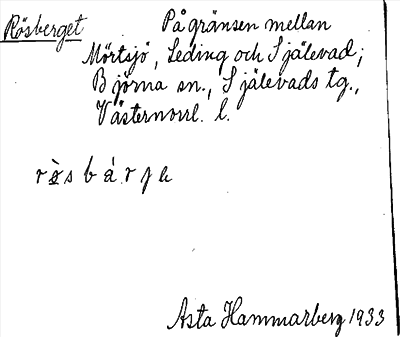 Rösberget På gränsen mellan
Mörtsjö, Leding och Själevad;
Björna sn., Själevads tg.,
Västernorrl. l.
Asta Hammarberg 1933